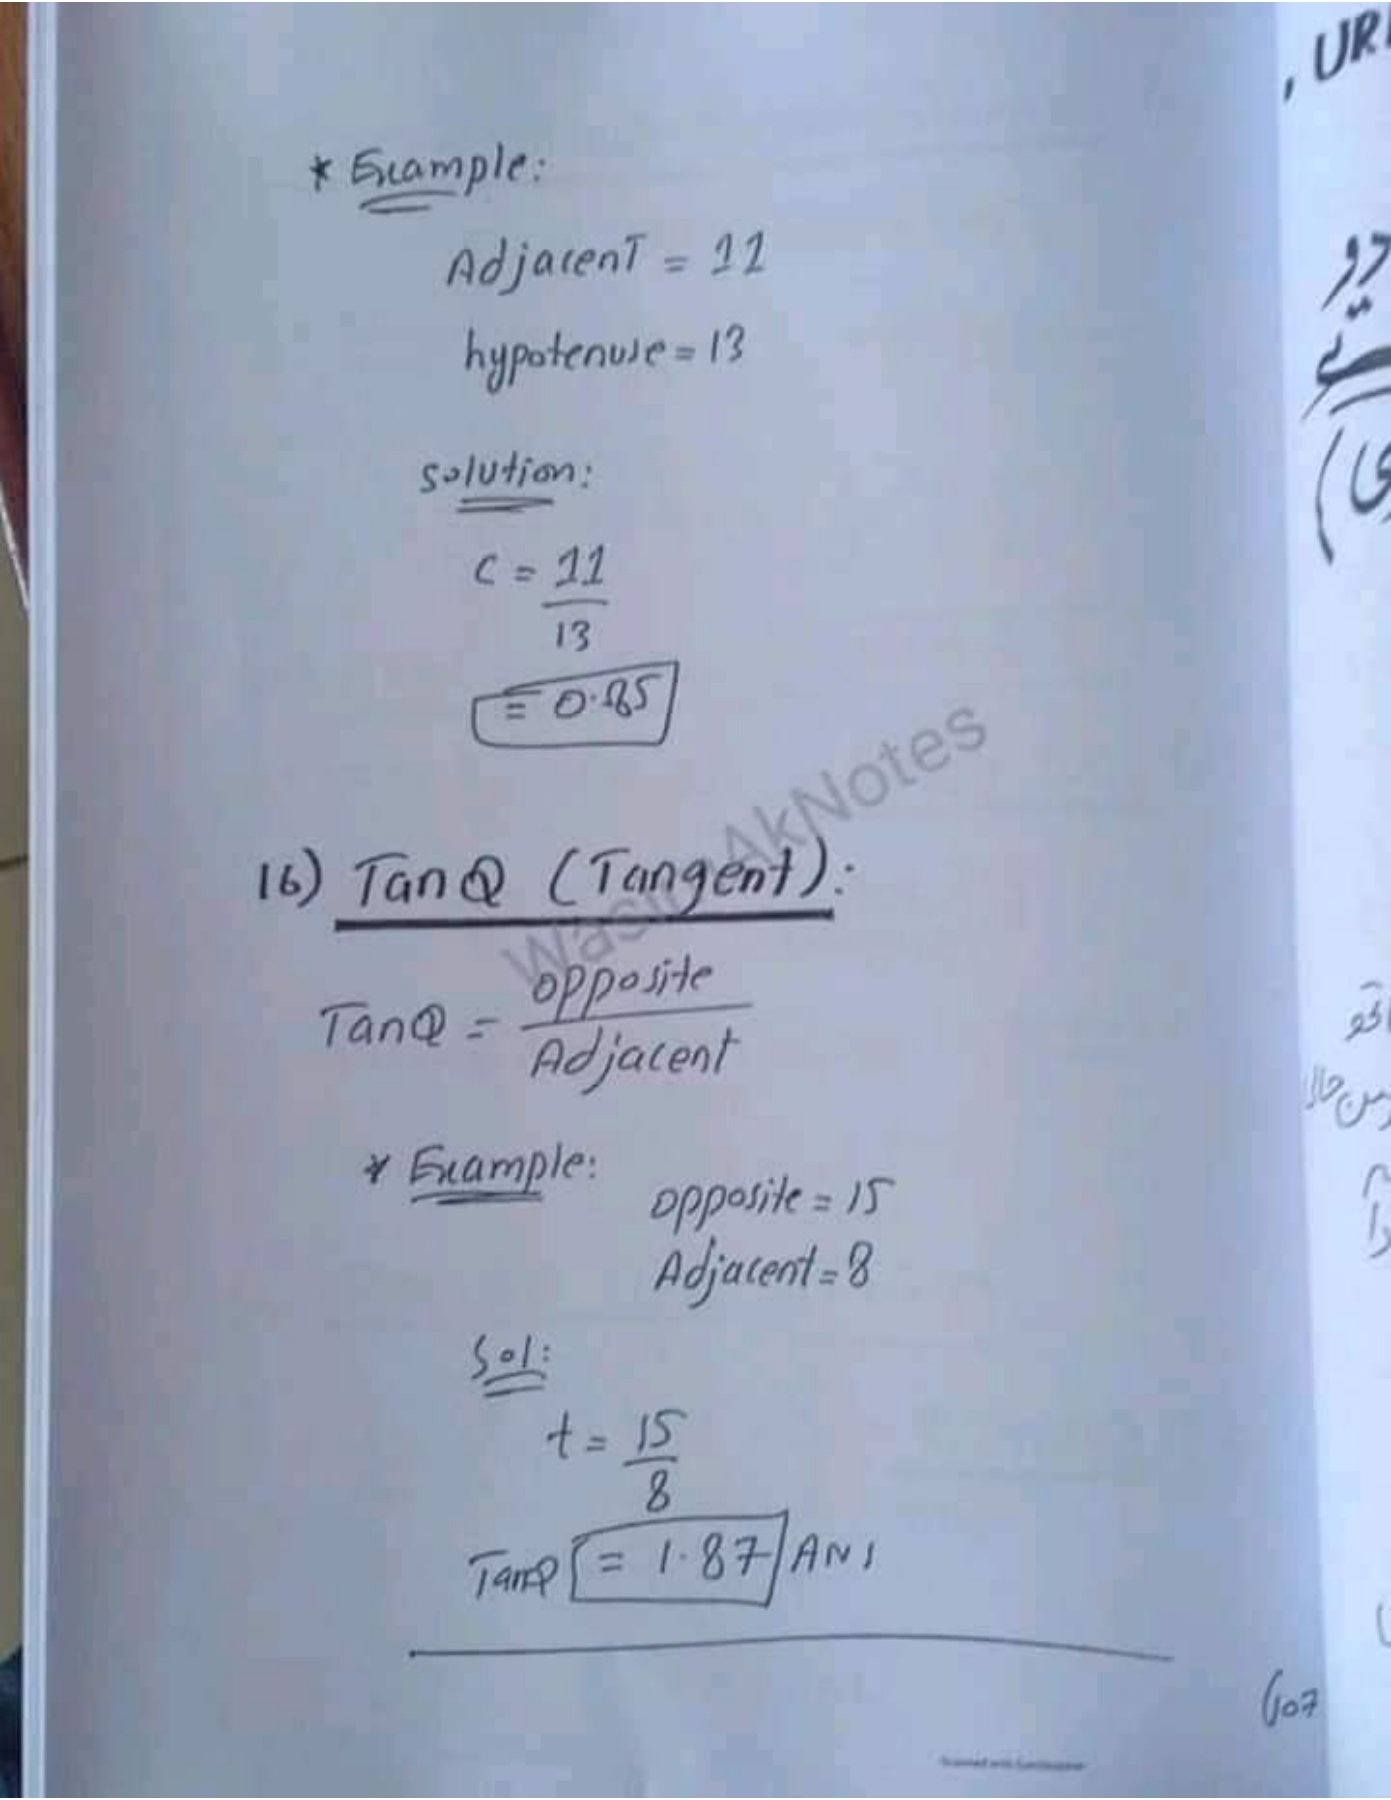 * Example:
Adjacent = 11
hypotenuse = 13
Solution:
C = 11
13
= 0.85
16) TanQ (Tangent):
TanQ = opposite
Adjacent
* Example:
opposite = 15
Adjacent = 8
Sol:
t = 15
8
TanQ = 1.87 ANS
107
, UR
AkNotes